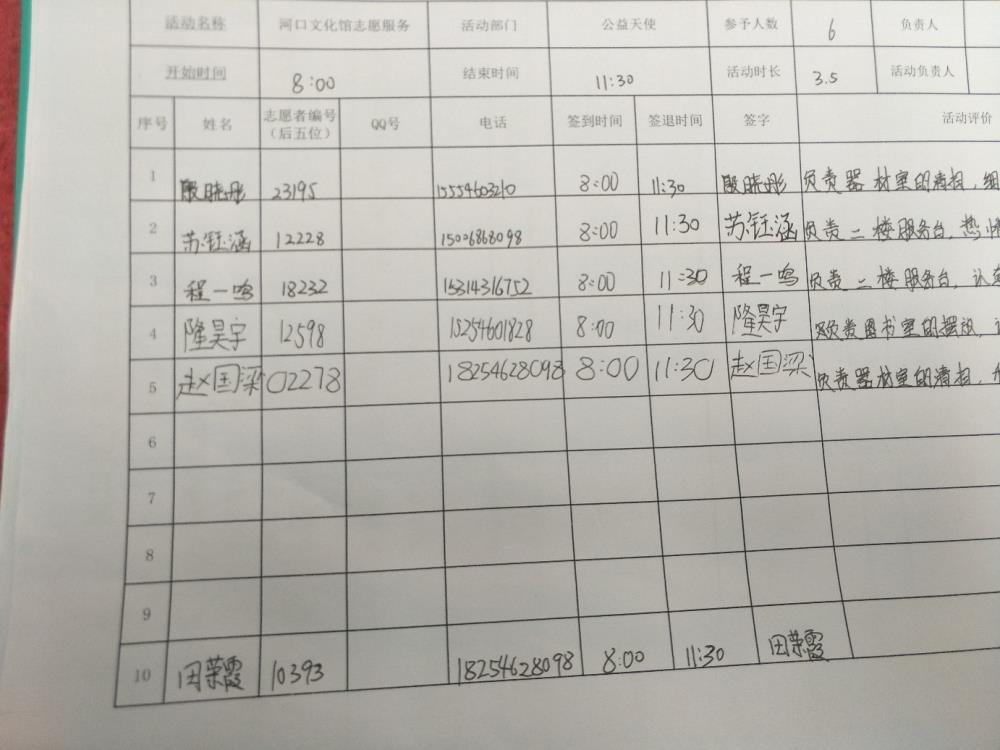 活动名称 河口文化馆志愿服务 活动部门 公益天使 参予人数 6 负责人
开始时间 8:00 结束时间 11:30 活动时长 3.5 活动负责人
序号 姓名 志愿者编号（后五位） QQ号 电话 签到时间 签退时间 签字 活动评价
1 殷晓彤 23195 15554603210 8:00 11:30 殷晓彤 负责器材室的清扫，细
2 苏钰涵 12228 15006868098 8:00 11:30 苏钰涵 负责二楼服务台，热情
3 程一鸣 18232 15314316752 8:00 11:30 程一鸣 负责二楼服务台，认真
4 隆昊宇 12598 15254601828 8:00 11:30 隆昊宇 负责图书室的摆放，
5 赵国梁 02278 18254628098 8:00 11:30 赵国梁 负责器材室的清扫，
6
7
8
9
10 田荣霞 10393 18254628098 8:00 11:30 田荣霞